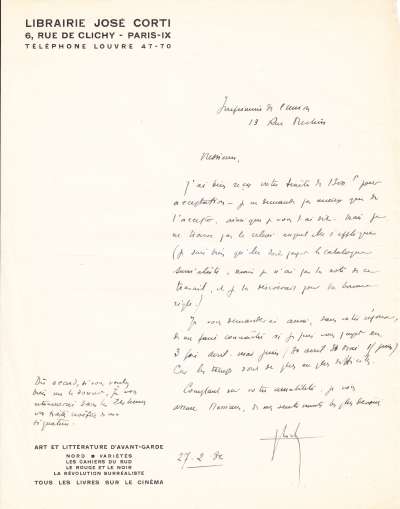 LIBRAIRIE JOSÉ CORTI
6, RUE DE CLICHY - PARIS-IX
TÉLÉPHONE LOUVRE 47-70
Imprimerie de l'union
13 Rue Méchin
Messieurs,
J'ai bien reçu votre traite de 1300 f pour
acceptation - je ne demande pas mieux que de
l'accepter, ainsi que je vous l'ai dit - mais je
ne trouve pas le relevé auquel elle s'applique
(je sais bien qu'elle doit payer le catalogue
surréaliste, mais je n'ai pas la note de ce
travail, et je la désirerais pour la bonne
règle.)
Je vous demanderai aussi, dans votre réponse,
de me faire connaître si je puis vous payer en
3 fois avril mai juin (30 avril 30 mai
Car les temps sont de plus en plus difficiles.
Comptant sur votre amabilité je vous
Messieurs, de mes sentiments les plus
Dès accord, si vous voulez
bien me le donner, je vous
retournerai dans les 24 heures
vos traites revêtues de ma
signature.
27-2-32
ART ET LITTÉRATURE D'AVANT-GARDE
NORD ■ VARIÉTÉS
LES CAHIERS DU SUD
LE ROUGE ET LE NOIR
LA RÉVOLUTION SURRÉALISTE
TOUS LES LIVRES SUR LE CINÉMA